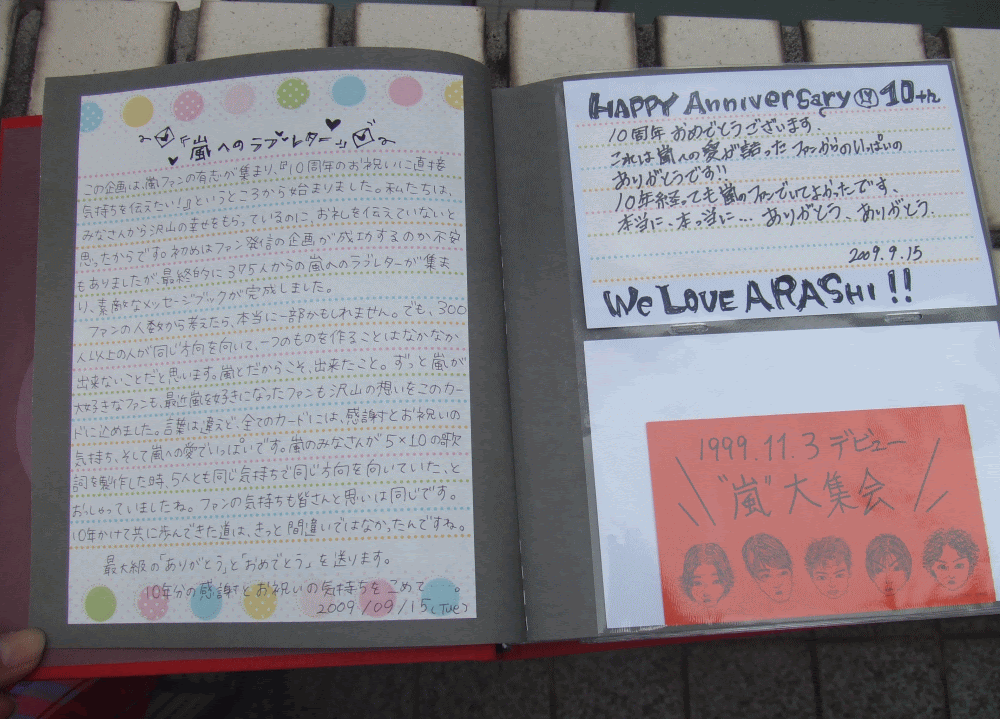 「嵐へのラブレター」
この企画は、嵐ファンの有志が集まり、『10周年のお祝いに直接
気持ちを伝えたい!』というところから始まりました。私たちは、
みなさんから沢山の幸せをもらっているのに、お礼を伝えていないと
思ったからです。初めはファン発信の企画が成功するのか不安
もありましたが、最終的に375人からの嵐へのラブレターが集ま
り、素敵なメッセージブックが完成しました。
ファンの人数から考えたら、本当に一部かもしれません。でも、300
人以上の人が同じ方向を向いて、一つのものを作ることはなかなか
出来ないことだと思います。嵐とだからこそ、出来たこと。ずっと嵐が
大好きなファンも、最近嵐を好きになったファンも沢山の想いをこのカー
ドに込めました。言葉は違えど、全てのカードには、感謝とお祝いの
気持ち、そして嵐への愛でいっぱいです。嵐のみなさんが5×10の歌
詞を製作した時、5人とも同じ気持ちで同じ方向を向いていた、と
おっしゃっていましたね。ファンの気持ちも皆さんと思いは同じです。
10年かけて共に歩んできた道は、きっと間違いではなかったんですね。
最大級の「ありがとう」と「おめでとう」を送ります。
10年分の感謝とお祝いの気持ちをこめて。
2009/09/15(Tue)
HAPPY Anniversary 10th
10周年おめでとうございます。
これは嵐への愛が詰ったファンからのいっぱいの
ありがとうです!!
10年経っても嵐のファンでいてよかったです、
本当に、本っ当に… ありがとう、ありがとう.
2009.9.15
We LOVE ARASHI!!
1999.11.3 デビュー
"嵐"大集会